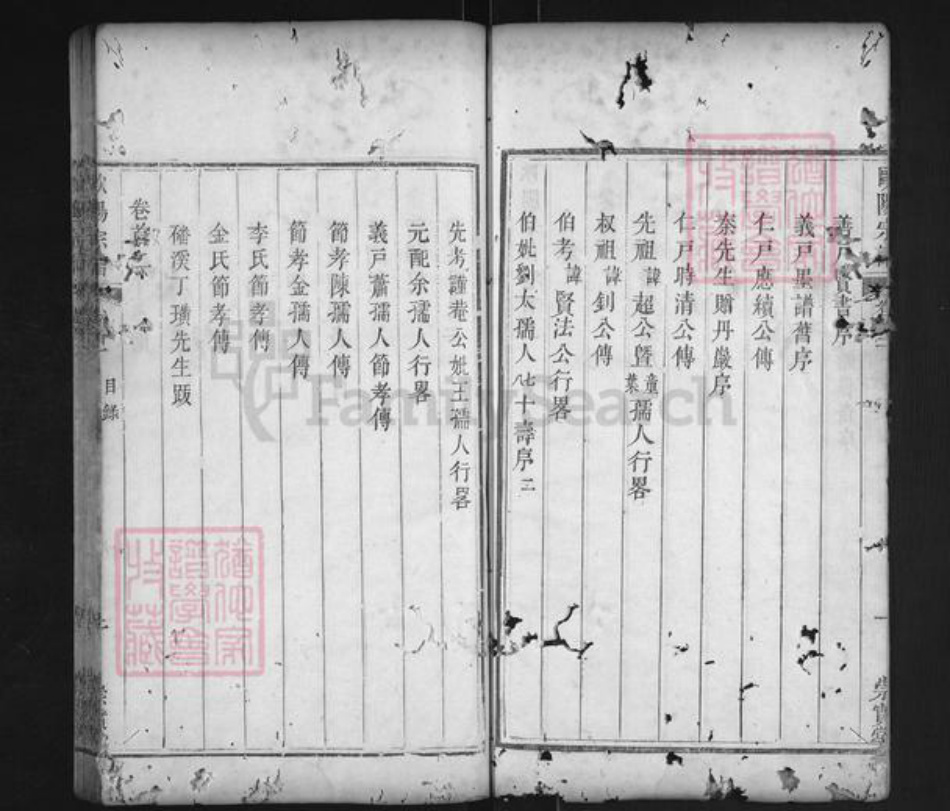 義戶實書序
義戶墨譜舊序
仁戶應績公傳
秦先生贈丹巖序
仁戶時清公傳
先祖諱超公暨童葉孺人行畧
叔祖諱釗公傳
伯考諱賢法公行畧
伯妣劉太孺人七八十壽序二
先考謹菴公妣王孺人行畧
元配余孺人行畧
義戶蕭孺人節孝傳
節孝陳孺人傳
節孝金孺人傳
李氏節孝傳
金氏節孝傳
磻溪丁璜先生跋
卷首
目錄
FamilySearch